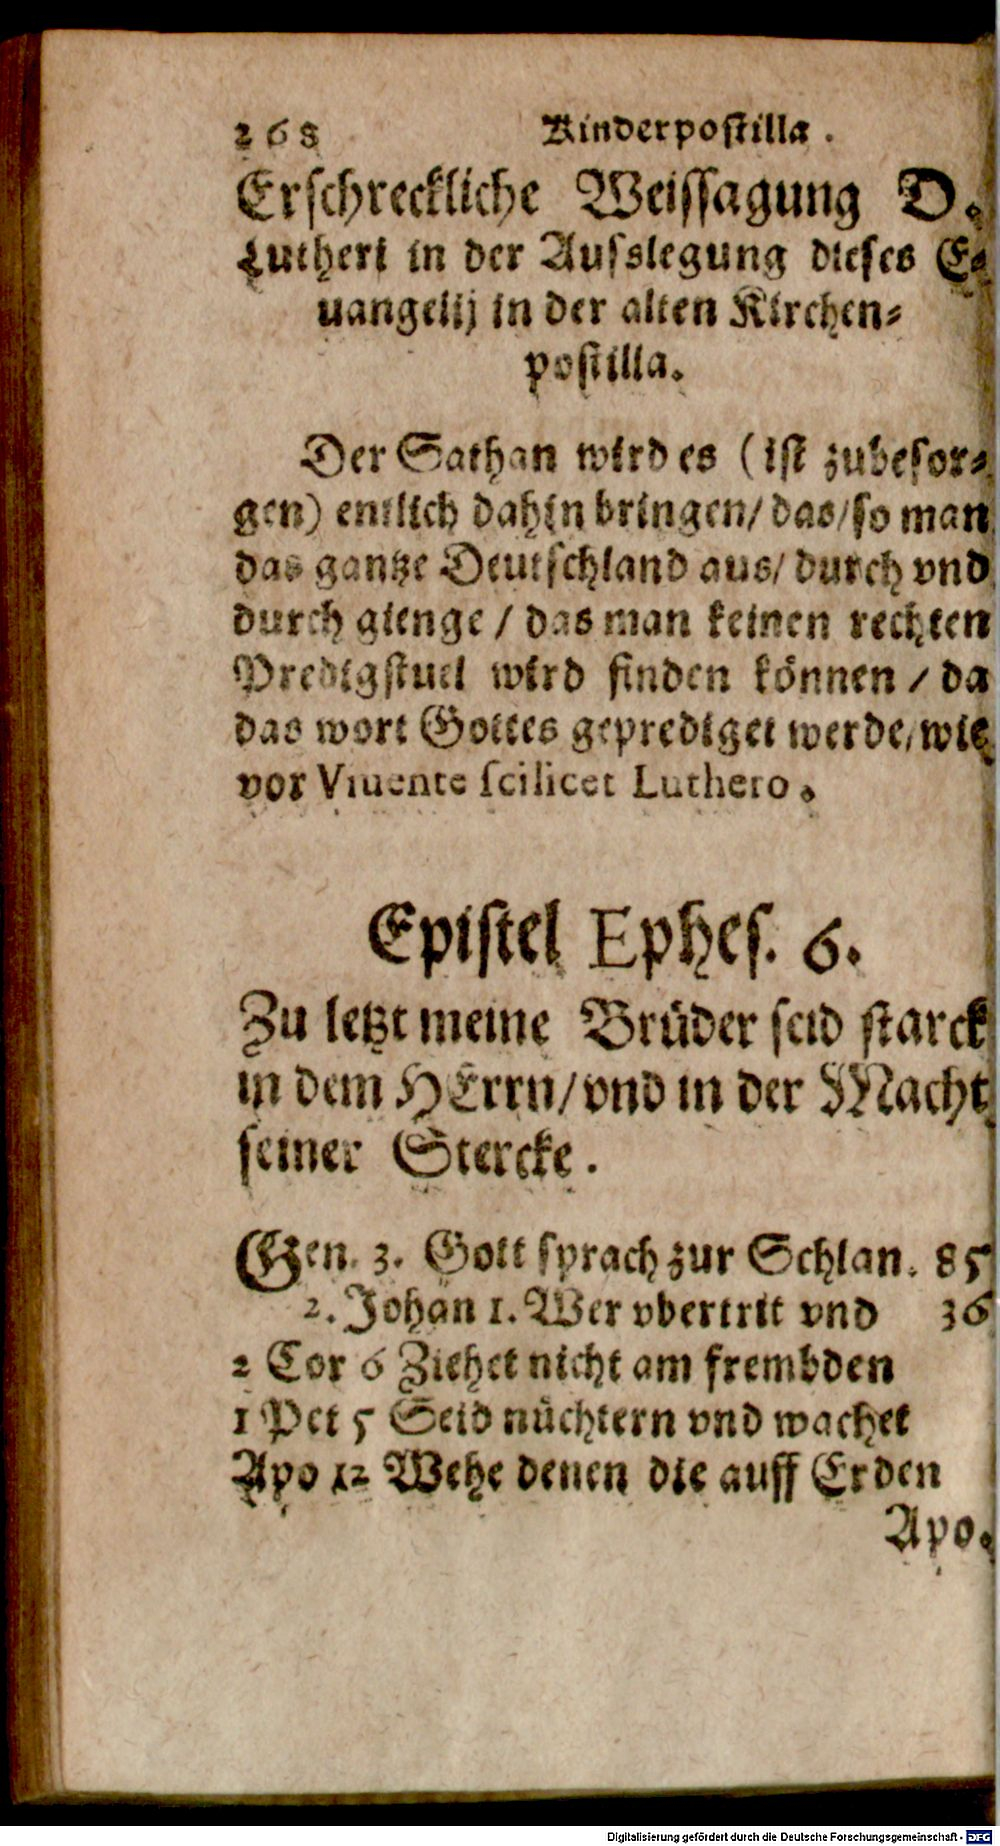 268 Kinderpostilla.
Erschreckliche Weissagung D.
Lutheri in der Ausslegung dieses E⸗
uangelij in der alten Kirchen⸗
postilla.
Der Sathan wird es (ist zubesor⸗
gen) entlich dahin bringen/ das/ so man
das gantze Deutschland aus/ durch vnd
durch gienge / das man keinen rechten
Predigstuel wird finden können / da
das wort Gottes geprediget werde/ wie
vor Viuente scilicet Luthero.
Epistel Ephes. 6.
Zu letzt meine Brüder seid starck
in dem HErrn/ vnd in der Macht
seiner Stercke.
Gen. 3. Gott sprach zur Schlan. 85
2. Johan 1. Wer vbertrit vnd 36
2 Cor 6 Ziehet nicht am frembden
1 Pet 5 Seid nüchtern vnd wachet
Apo 12 Wehe denen die auff Erden
Apo.
Digitalisierung gefördert durch die Deutsche Forschungsgemeinschaft - DFG